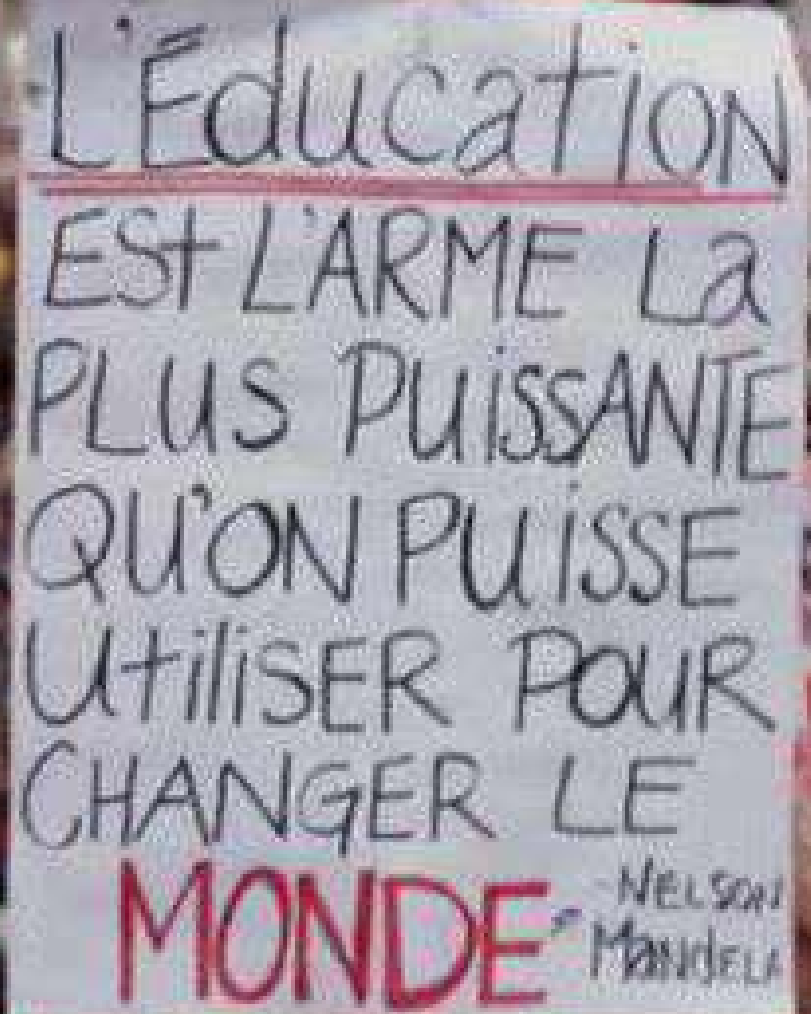 L'Éducation
ESt L'ARME La
PLUS PUiSSANTE
QU'ON PUiSSE
UtiliSER POUR
CHANGER LE
MONDE"
NELSON
MANdELA